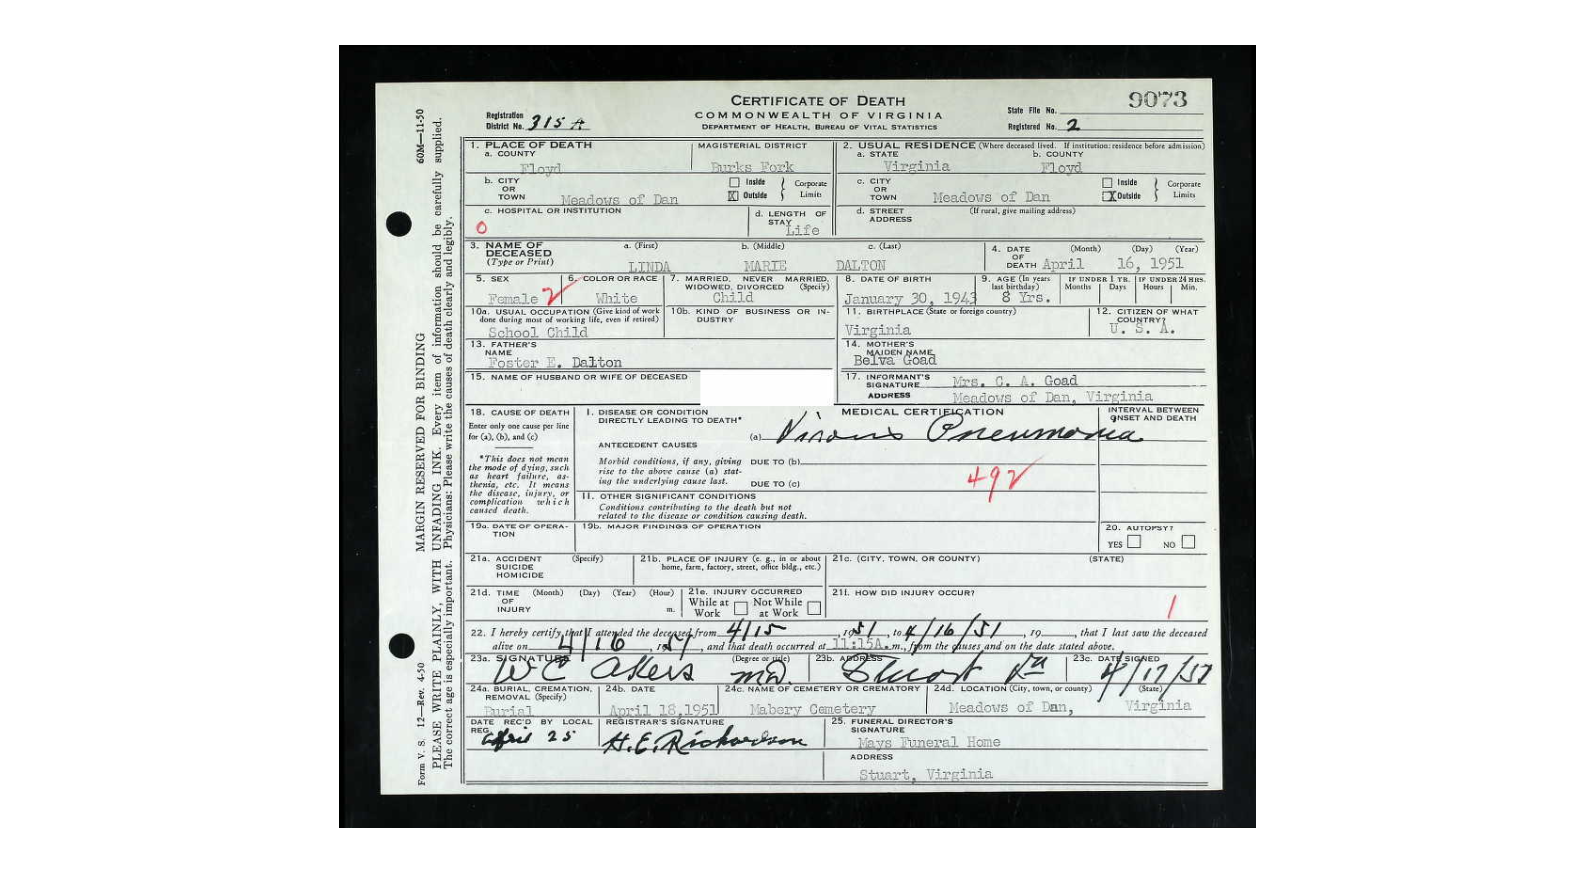 CERTIFICATE OF DEATH
COMMONWEALTH OF VIRGINIA
DEPARTMENT OF HEALTH, BUREAU OF VITAL STATISTICS
Registration District No. 315 A
State File No. 9073
Registered No. 2
60M—11-50
MARGIN RESERVED FOR BINDING
PLEASE WRITE PLAINLY, WITH UNFADING INK. Every item of information should be carefully supplied.
The correct age is especially important. Physicians: Please write the causes of death clearly and legibly.
Form V. S. 12—Rev. 4-50
1. PLACE OF DEATH
a. COUNTY Floyd
MAGISTERIAL DISTRICT Burks Fork
2. USUAL RESIDENCE (Where deceased lived. If institution: residence before admission)
a. STATE Virginia
b. COUNTY Floyd
b. CITY OR TOWN Meadows of Dan
Inside
X Outside
Corporate Limits
c. CITY OR TOWN Meadows of Dan
Inside
X Outside
Corporate Limits
c. HOSPITAL OR INSTITUTION
0
d. LENGTH OF STAY Life
d. STREET ADDRESS (If rural, give mailing address)
3. NAME OF DECEASED (Type or Print)
a. (First) LINDA
b. (Middle) MARIE
c. (Last) DALTON
4. DATE OF DEATH (Month) (Day) (Year)
April 16, 1951
5. SEX Female 2
6. COLOR OR RACE White
7. MARRIED, NEVER MARRIED, WIDOWED, DIVORCED (Specify) Child
8. DATE OF BIRTH January 30, 1943
9. AGE (In years last birthday) 8 Yrs.
IF UNDER 1 YR. Months Days
IF UNDER 24 HRS. Hours Min.
10a. USUAL OCCUPATION (Give kind of work done during most of working life, even if retired)
School Child
10b. KIND OF BUSINESS OR INDUSTRY
11. BIRTHPLACE (State or foreign country)
Virginia
12. CITIZEN OF WHAT COUNTRY?
U. S. A.
13. FATHER'S NAME
Foster E. Dalton
14. MOTHER'S MAIDEN NAME
Belva Goad
15. NAME OF HUSBAND OR WIFE OF DECEASED
17. INFORMANT'S SIGNATURE Mrs. C. A. Goad
ADDRESS Meadows of Dan, Virginia
18. CAUSE OF DEATH
Enter only one cause per line for (a), (b), and (c)
*This does not mean the mode of dying, such as heart failure, asthenia, etc. It means the disease, injury, or complication which caused death.
MEDICAL CERTIFICATION
INTERVAL BETWEEN ONSET AND DEATH
I. DISEASE OR CONDITION DIRECTLY LEADING TO DEATH*
(a) Virous Pneumonia
ANTECEDENT CAUSES
Morbid conditions, if any, giving rise to the above cause (a) stating the underlying cause last.
DUE TO (b)
DUE TO (c)
492
II. OTHER SIGNIFICANT CONDITIONS
Conditions contributing to the death but not related to the disease or condition causing death.
19a. DATE OF OPERATION
19b. MAJOR FINDINGS OF OPERATION
20. AUTOPSY?
YES NO
21a. ACCIDENT SUICIDE HOMICIDE (Specify)
21b. PLACE OF INJURY (e. g., in or about home, farm, factory, street, office bldg., etc.)
21c. (CITY, TOWN, OR COUNTY) (STATE)
21d. TIME OF INJURY (Month) (Day) (Year) (Hour) m.
21e. INJURY OCCURRED
While at Work Not While at Work
21f. HOW DID INJURY OCCUR?
1
22. I hereby certify that I attended the deceased from 4/15, 1951, to 4/16/51, 19 , that I last saw the deceased
alive on 4/16, 1951, and that death occurred at 11:15A.m., from the causes and on the date stated above.
23a. SIGNATURE (Degree or title)
W C Akers MD.
23b. ADDRESS
Stuart Va
23c. DATE SIGNED
4/17/51
24a. BURIAL, CREMATION, REMOVAL (Specify)
Burial
24b. DATE
April 18, 1951
24c. NAME OF CEMETERY OR CREMATORY
Mabery Cemetery
24d. LOCATION (City, town, or county) (State)
Meadows of Dan, Virginia
DATE REC'D BY LOCAL REG.
April 25
REGISTRAR'S SIGNATURE
H. E. Richardson
25. FUNERAL DIRECTOR'S SIGNATURE
Mays Funeral Home
ADDRESS
Stuart, Virginia